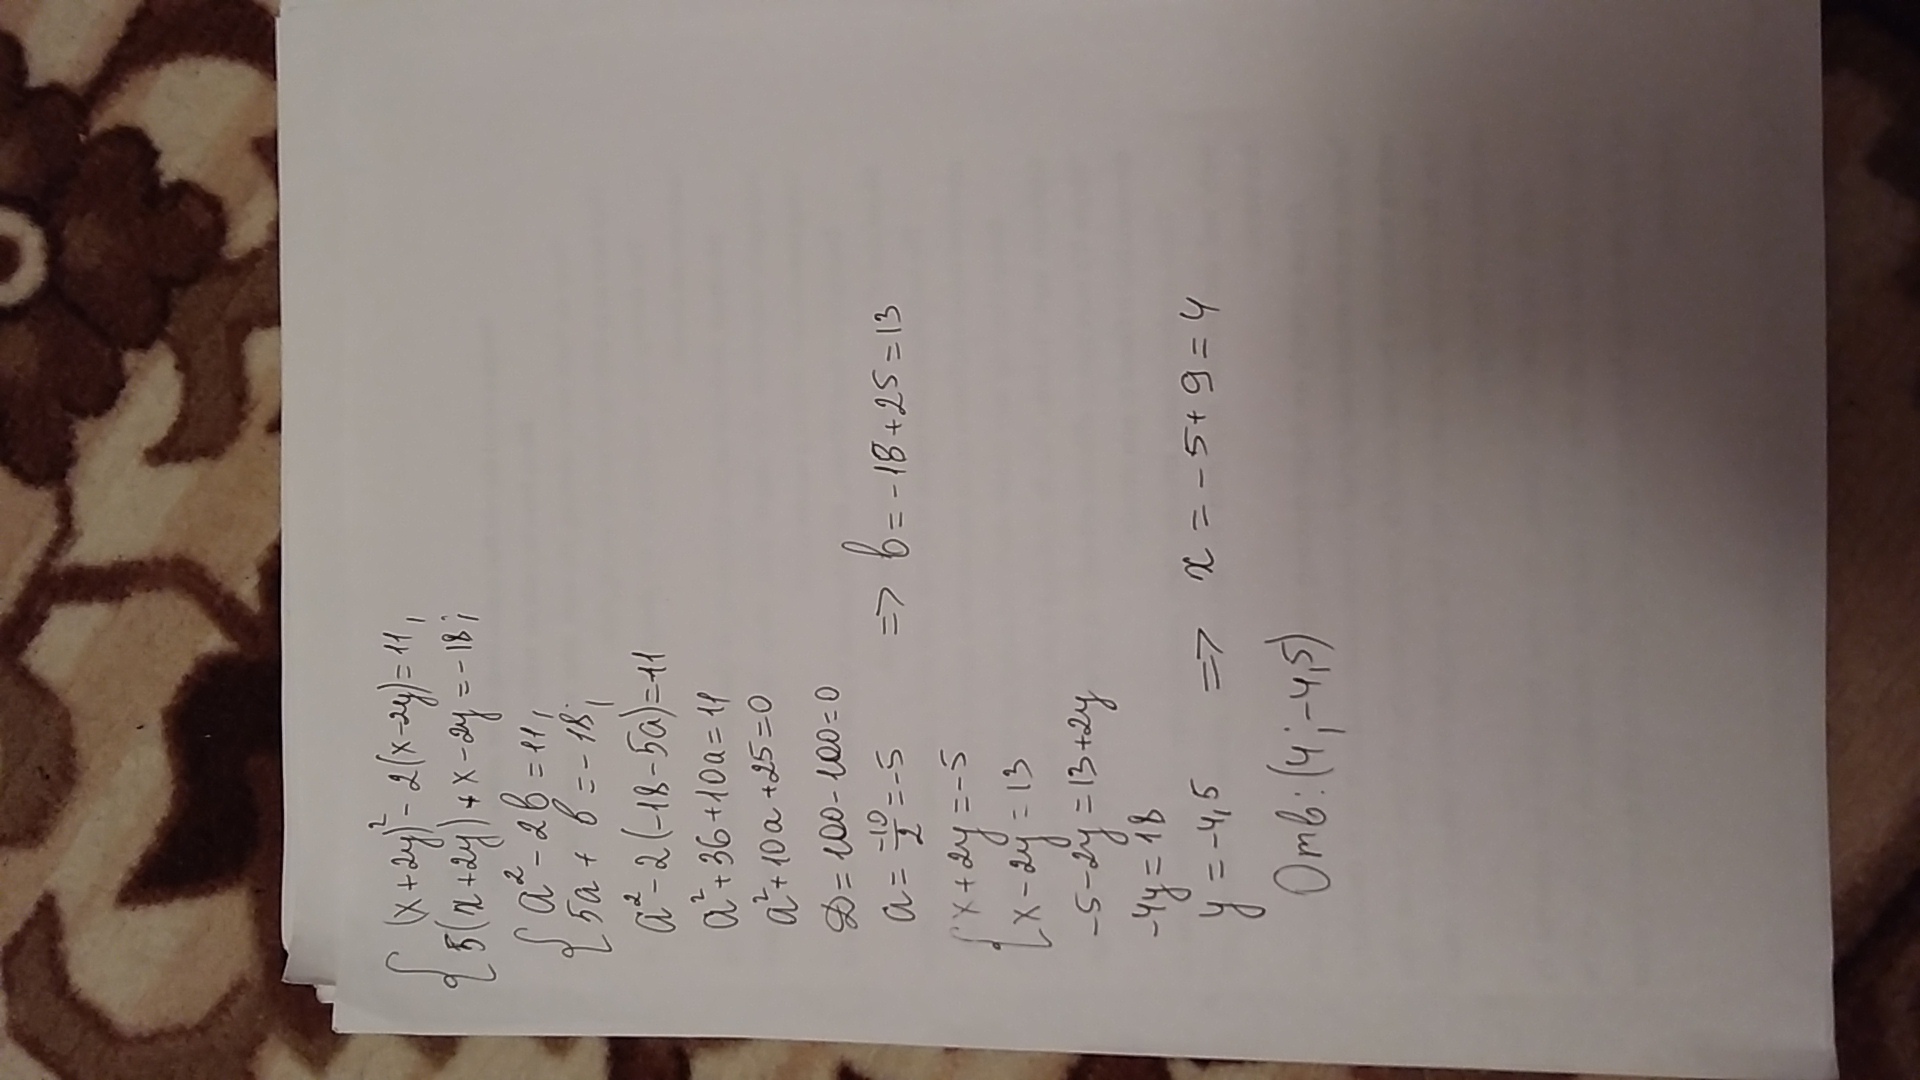 {(x+2y)²-2(x-2y)=11,
{5(x+2y)+x-2y=-18;
{a²-2b=11,
{5a+b=-18;
a²-2(-18-5a)=11
a²+36+10a=11
a²+10a+25=0
D=100-100=0
a=-10/2=-5 => b=-18+25=13
{x+2y=-5
{x-2y=13
-5-2y=13+2y
-4y=18
y=-4,5 => x=-5+9=4
Отв:(4;-4,5)